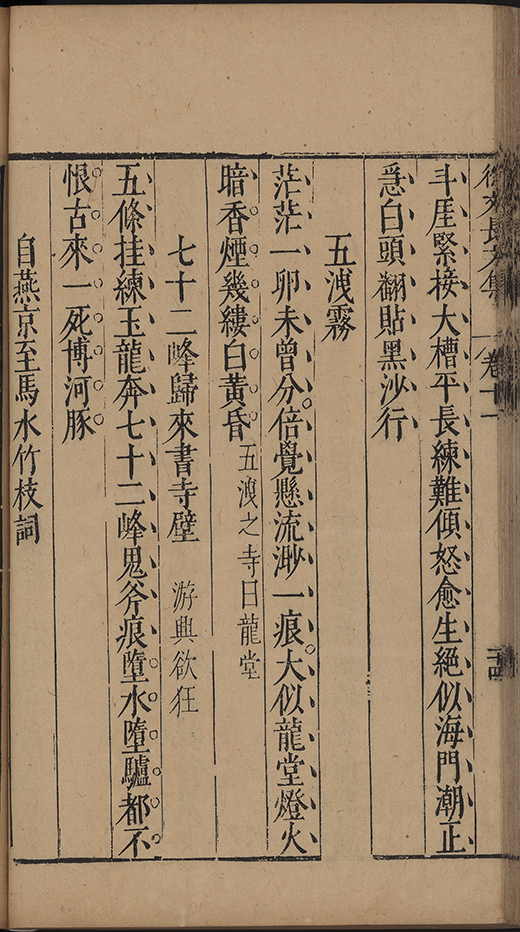 徐文長文集 卷十一 二十四
斗厓緊接大槽平長練難傾怒愈生絕似海門潮正
急白頭翻貼黑沙行
五洩霧
茫茫一卵未曾分倍覺懸流渺一痕大似龍堂燈火
暗香煙幾縷白黃昏五洩之寺曰龍堂
七十二峰歸來書寺壁 游興欲狂
五條挂練玉龍奔七十二峰鬼斧痕墮水墮驢都不
恨古來一死博河豚
自燕京至馬水竹枝詞